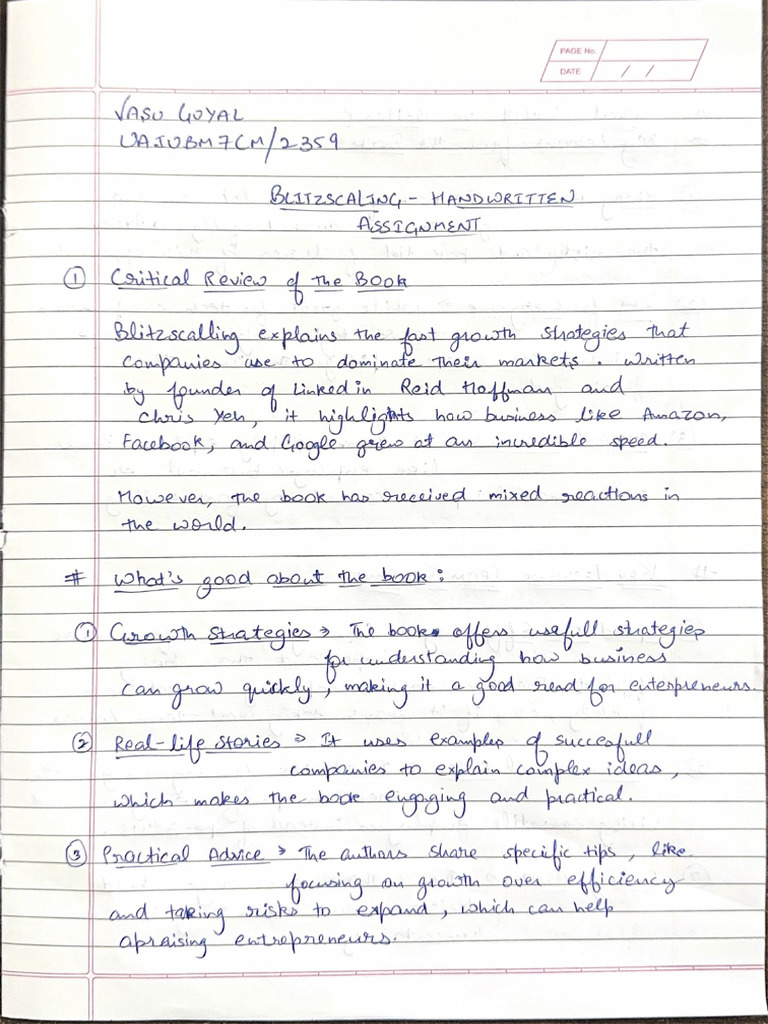 PAGE No.
DATE / /
VASU GOYAL
UAJUBM7CM/2359
BLITZSCALING - HANDWRITTEN
ASSIGNMENT
① Critical Review of the Book
Blitzscalling explains the fast growth strategies that
companies use to dominate their markets. Written
by founder of Linkedin Reid Hoffman and
Chris Yeh, it highlights how business like Amazon,
Facebook, and Google grew at an incredible speed.
However, the book has received mixed reactions in
the world.
# What's good about the book:
① Growth Strategies → The book offers usefull strategies
for understanding how business
can grow quickly, making it a good read for enterpreneurs.
② Real-life Stories → It uses examples of succesfull
companies to explain complex ideas,
which makes the book engaging and practical.
③ Practical Advice → The authors share specific tips, like
focusing on growth over efficiency
and taking risks to expand, which can help
apraising entrepreneurs.